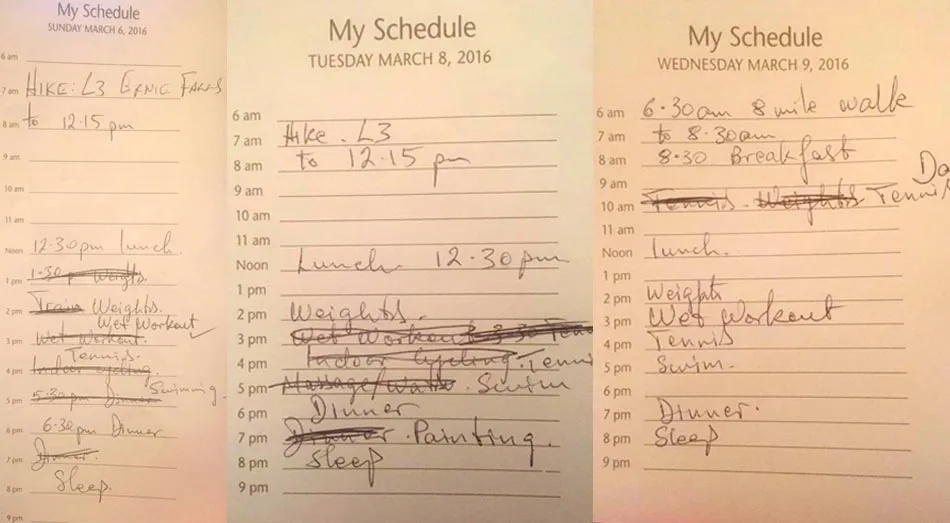 My Schedule
SUNDAY MARCH 6, 2016
6 am
7 am HIKE: L3 ERNIE FARMS
8 am to 12.15 pm
9 am
10 am
11 am
Noon 12.30pm Lunch.
1 pm 1.30 pm Weights.
2 pm Train Weights.
Wet Workout
3 pm Wet Workout.
Tennis.
4 pm Indoor cycling.
Swimming.
5 pm 5.30 pm Dinner
6 pm 6.30 pm Dinner
7 pm Dinner.
8 pm Sleep.
9 pm
My Schedule
TUESDAY MARCH 8, 2016
6 am
7 am Hike. L3
8 am to 12.15 pm
9 am
10 am
11 am
Noon Lunch 12.30pm
1 pm
2 pm Weights.
3 pm Wet Workout 3.30 Tenn
4 pm Indoor Cycling. Tenni
5 pm Massage/ . Swim
6 pm Dinner
7 pm Dinner. Painting.
8 pm Sleep
9 pm
My Schedule
WEDNESDAY MARCH 9, 2016
6 am 6.30am 8 mile walk
7 am to 8.30am
8 am 8.30 Breakfast
9 am Da
10 am Tennis. Weights Tennis
11 am
Noon Lunch.
1 pm
2 pm Weights
3 pm Wet Workout
4 pm Tennis
5 pm Swim.
6 pm
7 pm Dinner.
8 pm Sleep
9 pm